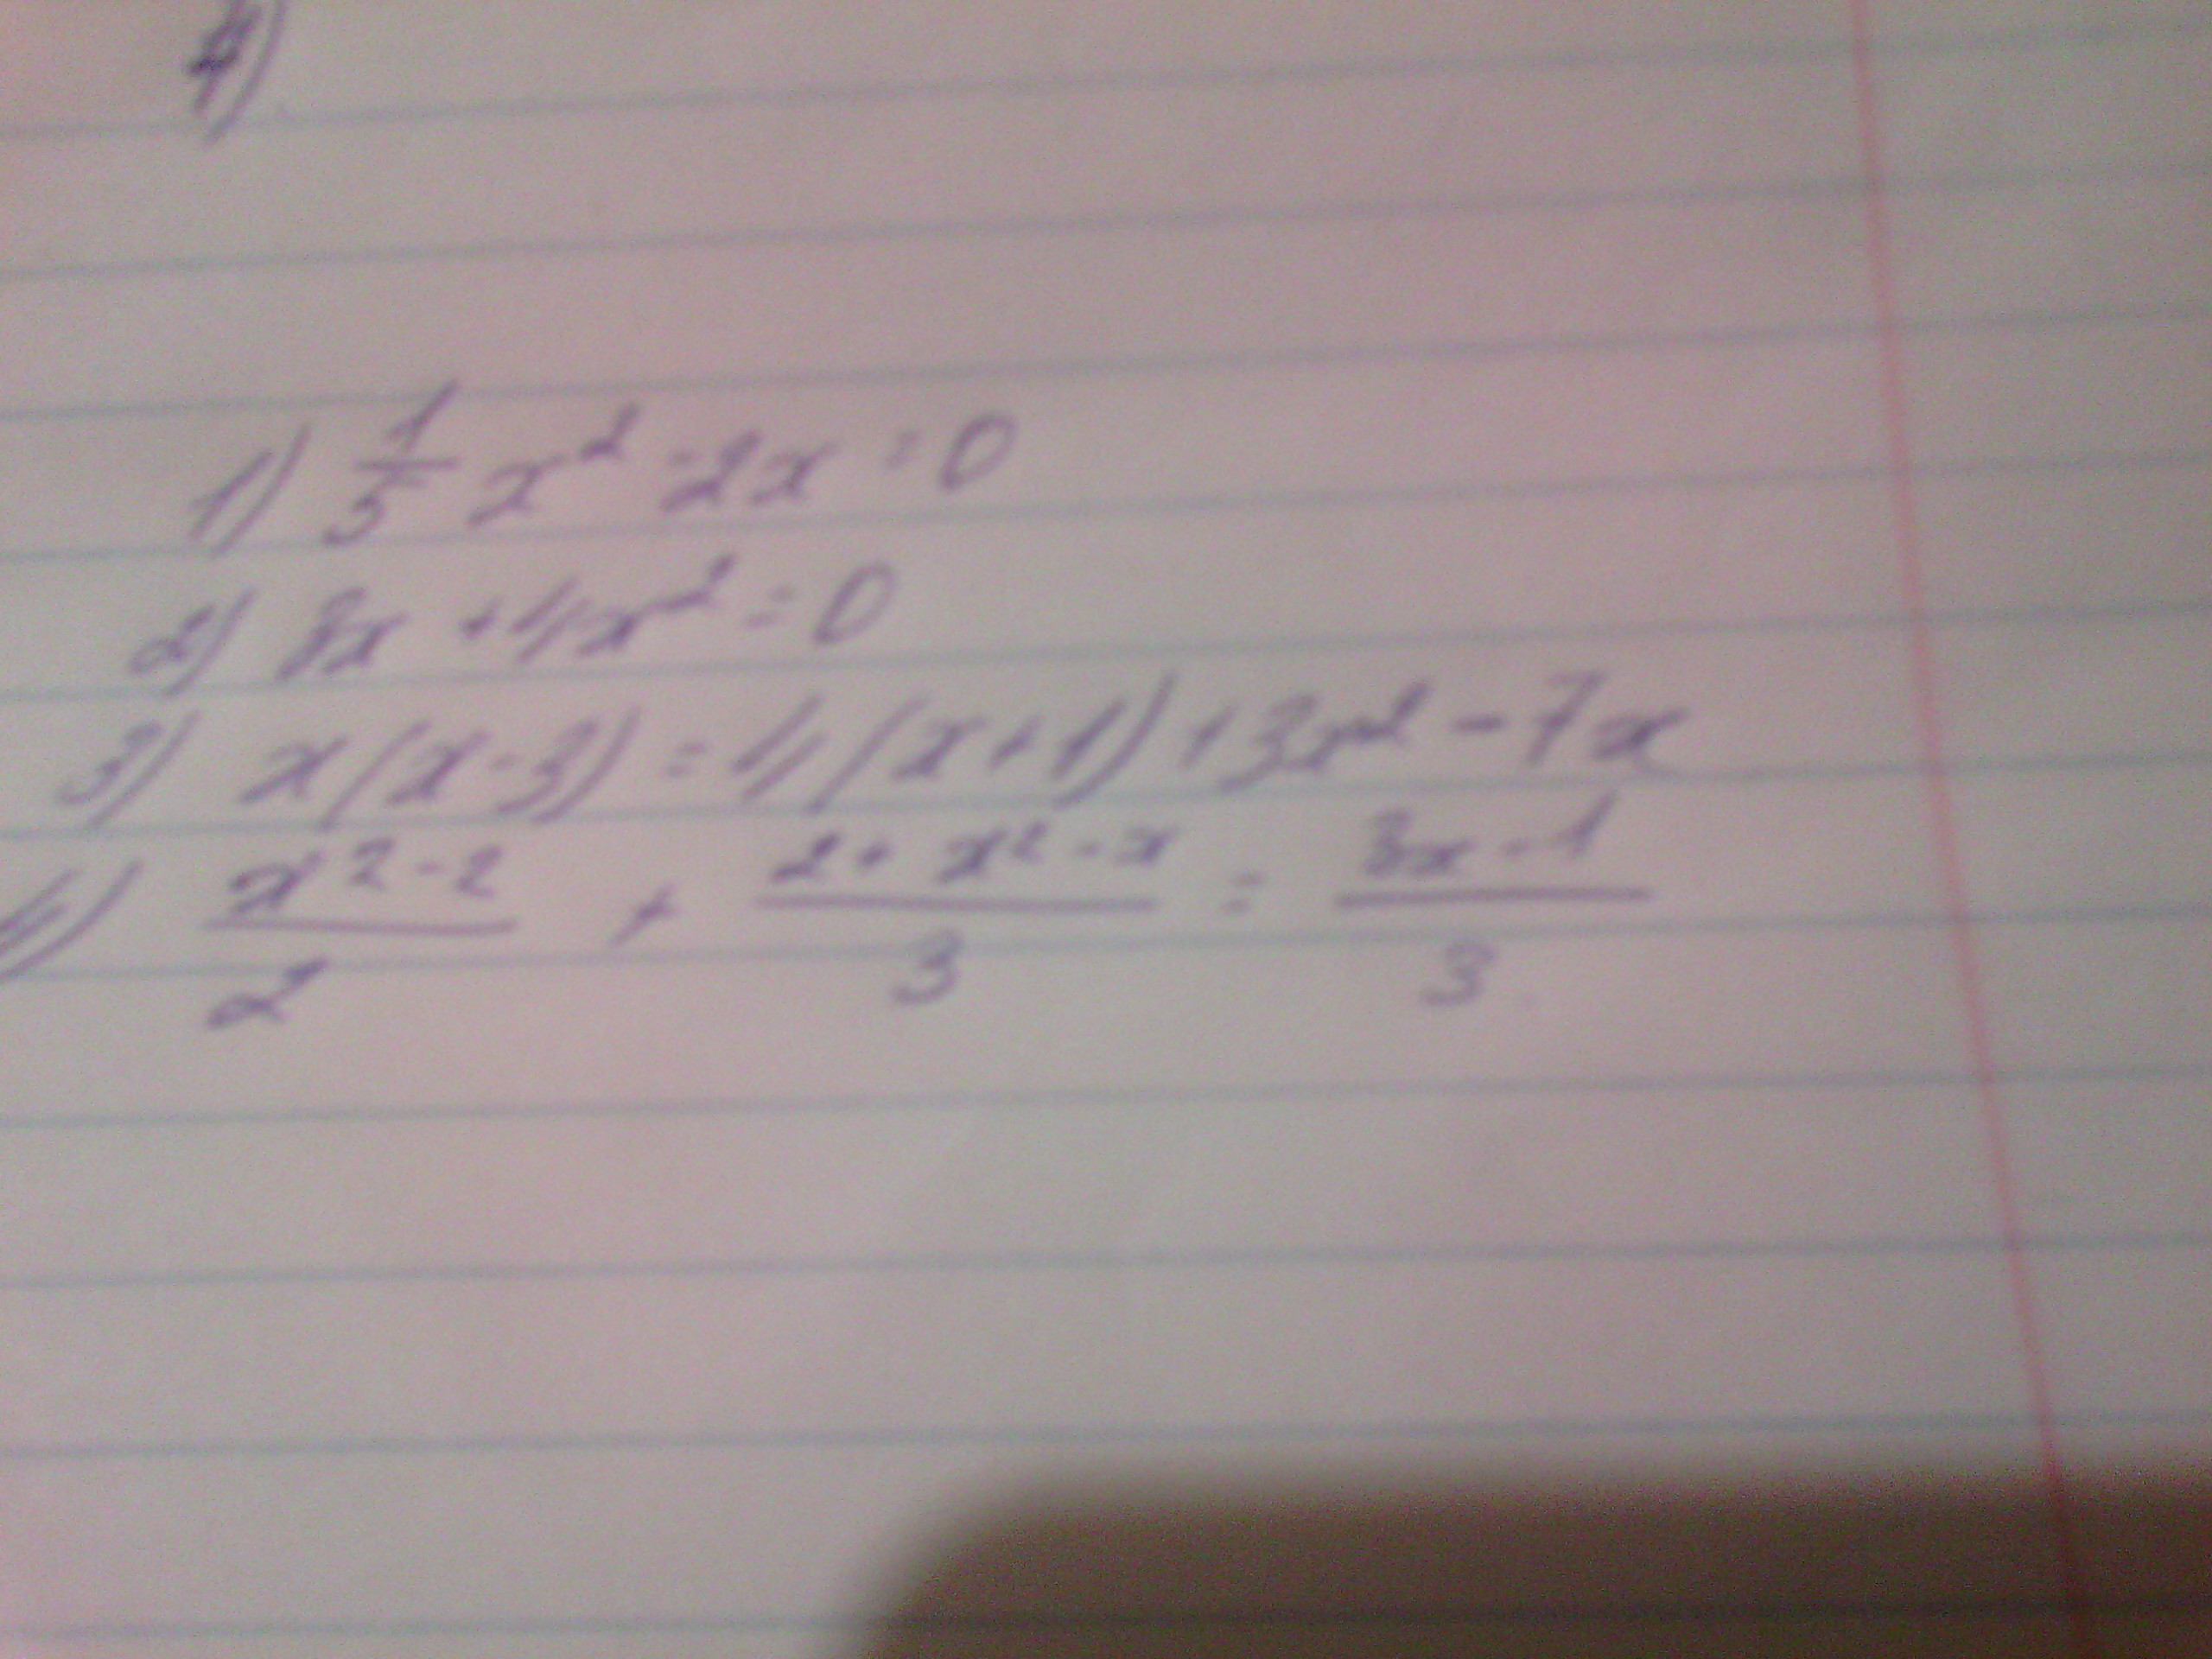 4)
1) 1/5 x² - 2x = 0
2) 8x + 4x² = 0
3) x(x-3) = 4(x+1) + 3x² - 7x
4) (x² - 2)/2 + (2 + x² - x)/3 = (8x - 1)/3